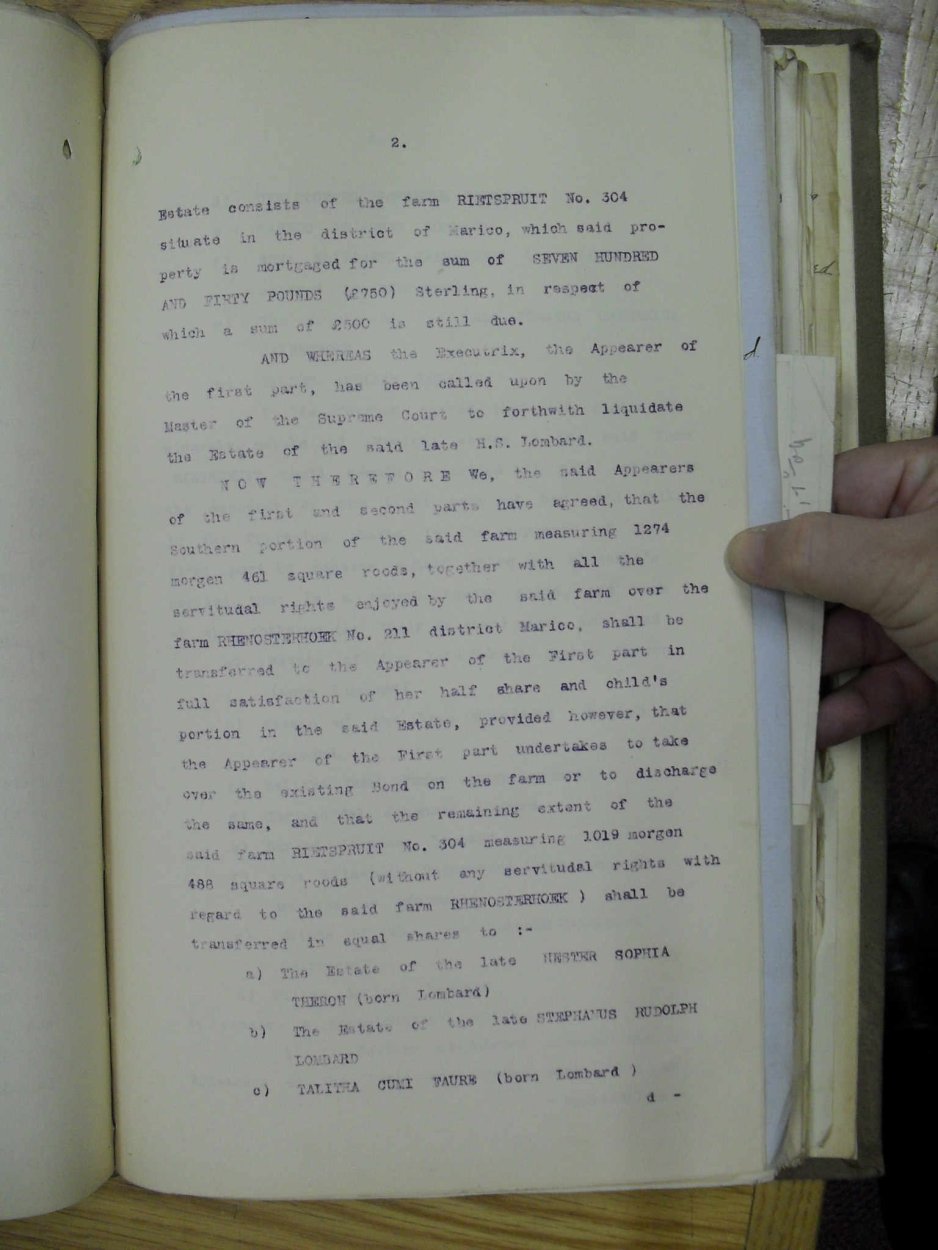 2.
Estate consists of the farm RIETSPRUIT No. 304
situate in the district of Marico, which said pro-
perty is mortgaged for the sum of SEVEN HUNDRED
AND FIFTY POUNDS (£750) Sterling, in respect of
which a sum of £500 is still due.
AND WHEREAS the Executrix, the Appearer of
the first part, has been called upon by the
Master of the Supreme Court to forthwith liquidate
the Estate of the said late H.S. Lombard.
N O W T H E R E F O R E We, the said Appearers
of the first and second parts have agreed, that the
Southern portion of the said farm measuring 1274
morgen 461 square roods, together with all the
servitudal rights enjoyed by the said farm over the
farm RHENOSTERHOEK No. 211 district Marico, shall be
transferred to the Appearer of the First part in
full satisfaction of her half share and child's
portion in the said Estate, provided however, that
the Appearer of the First part undertakes to take
over the existing Bond on the farm or to discharge
the same, and that the remaining extent of the
said farm RIETSPRUIT No. 304 measuring 1019 morgen
488 square roods (without any servitudal rights with
regard to the said farm RHENOSTERHOEK ) shall be
transferred in equal shares to :-
a) The Estate of the late HESTER SOPHIA
THERON (born Lombard)
b) The Estate of the late STEPHANUS RUDOLPH
LOMBARD
c) TALITHA CUMI FAURE (born Lombard )
d -